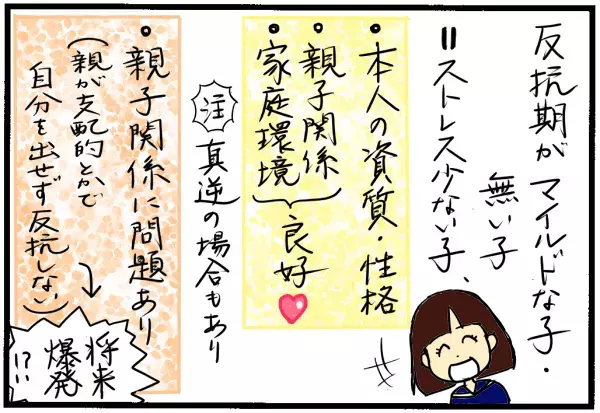 反抗期がマイルドな子・
無い子
=ストレス少ない子、
・本人の資質・性格
・親子関係
・家庭環境
良好
注 真逆の場合もあり
・親子関係に問題あり
(親が支配的とかで
自分を出せず反抗しない)
→
将来
爆発
!?…